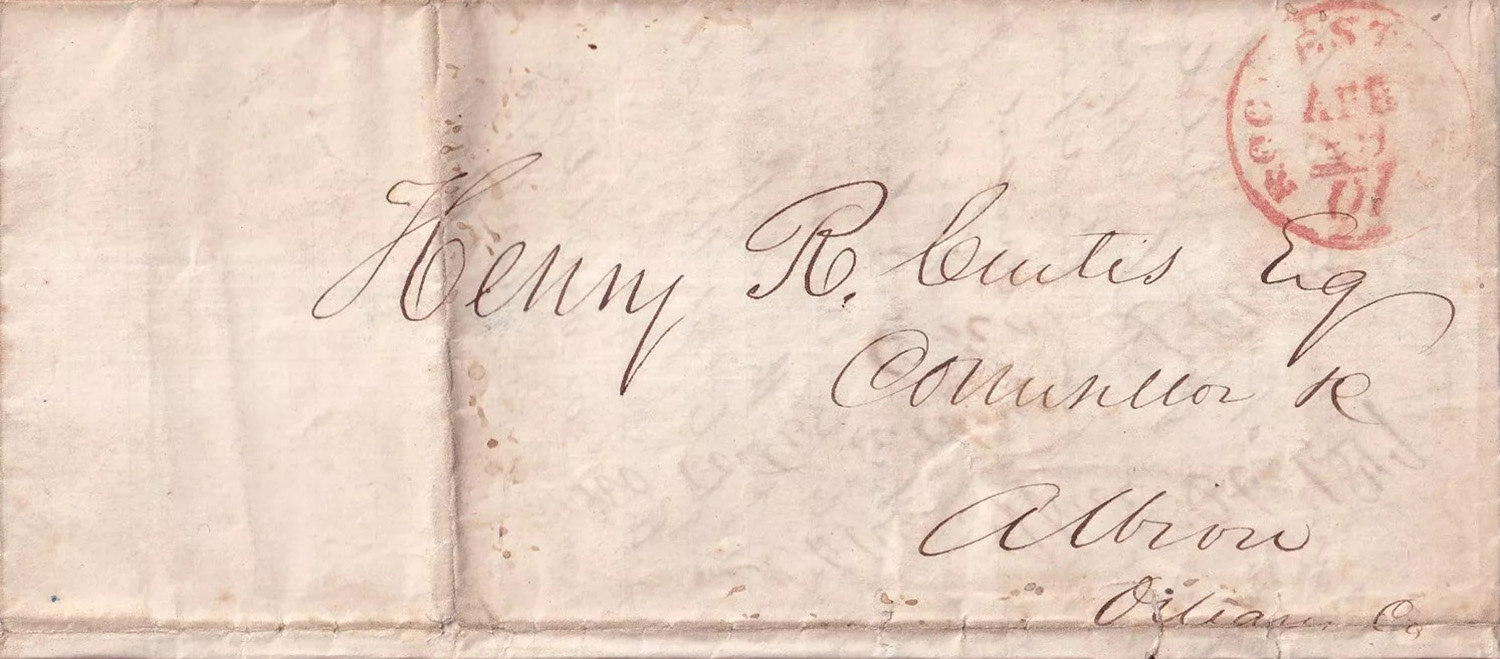 ROC EST
APR
Henry R. Curtis Esq
Counsellor &c
Albion
Orleans Co